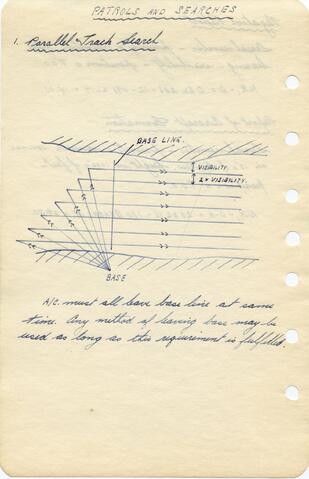 PATROLS AND SEARCHES
1. Parallel Track Search
BASE LINE.
VISIBILITY.
2 x VISIBILITY.
BASE
A/C. must all leave base line at same
time. Any method of leaving base may be
used as long as this requirement is fulfilled.